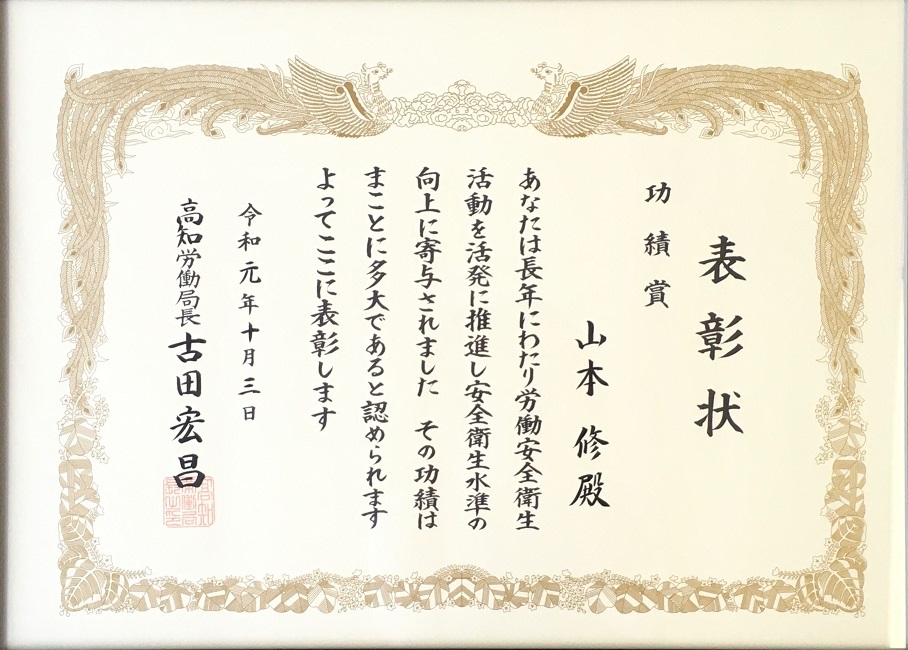 表彰状
功績賞
山本 修殿
あなたは長年にわたり労働安全衛生
活動を活発に推進し安全衛生水準の
向上に寄与されました その功績は
まことに多大であると認められます
よってここに表彰します
令和元年十月三日
高知労働局長 古田宏昌